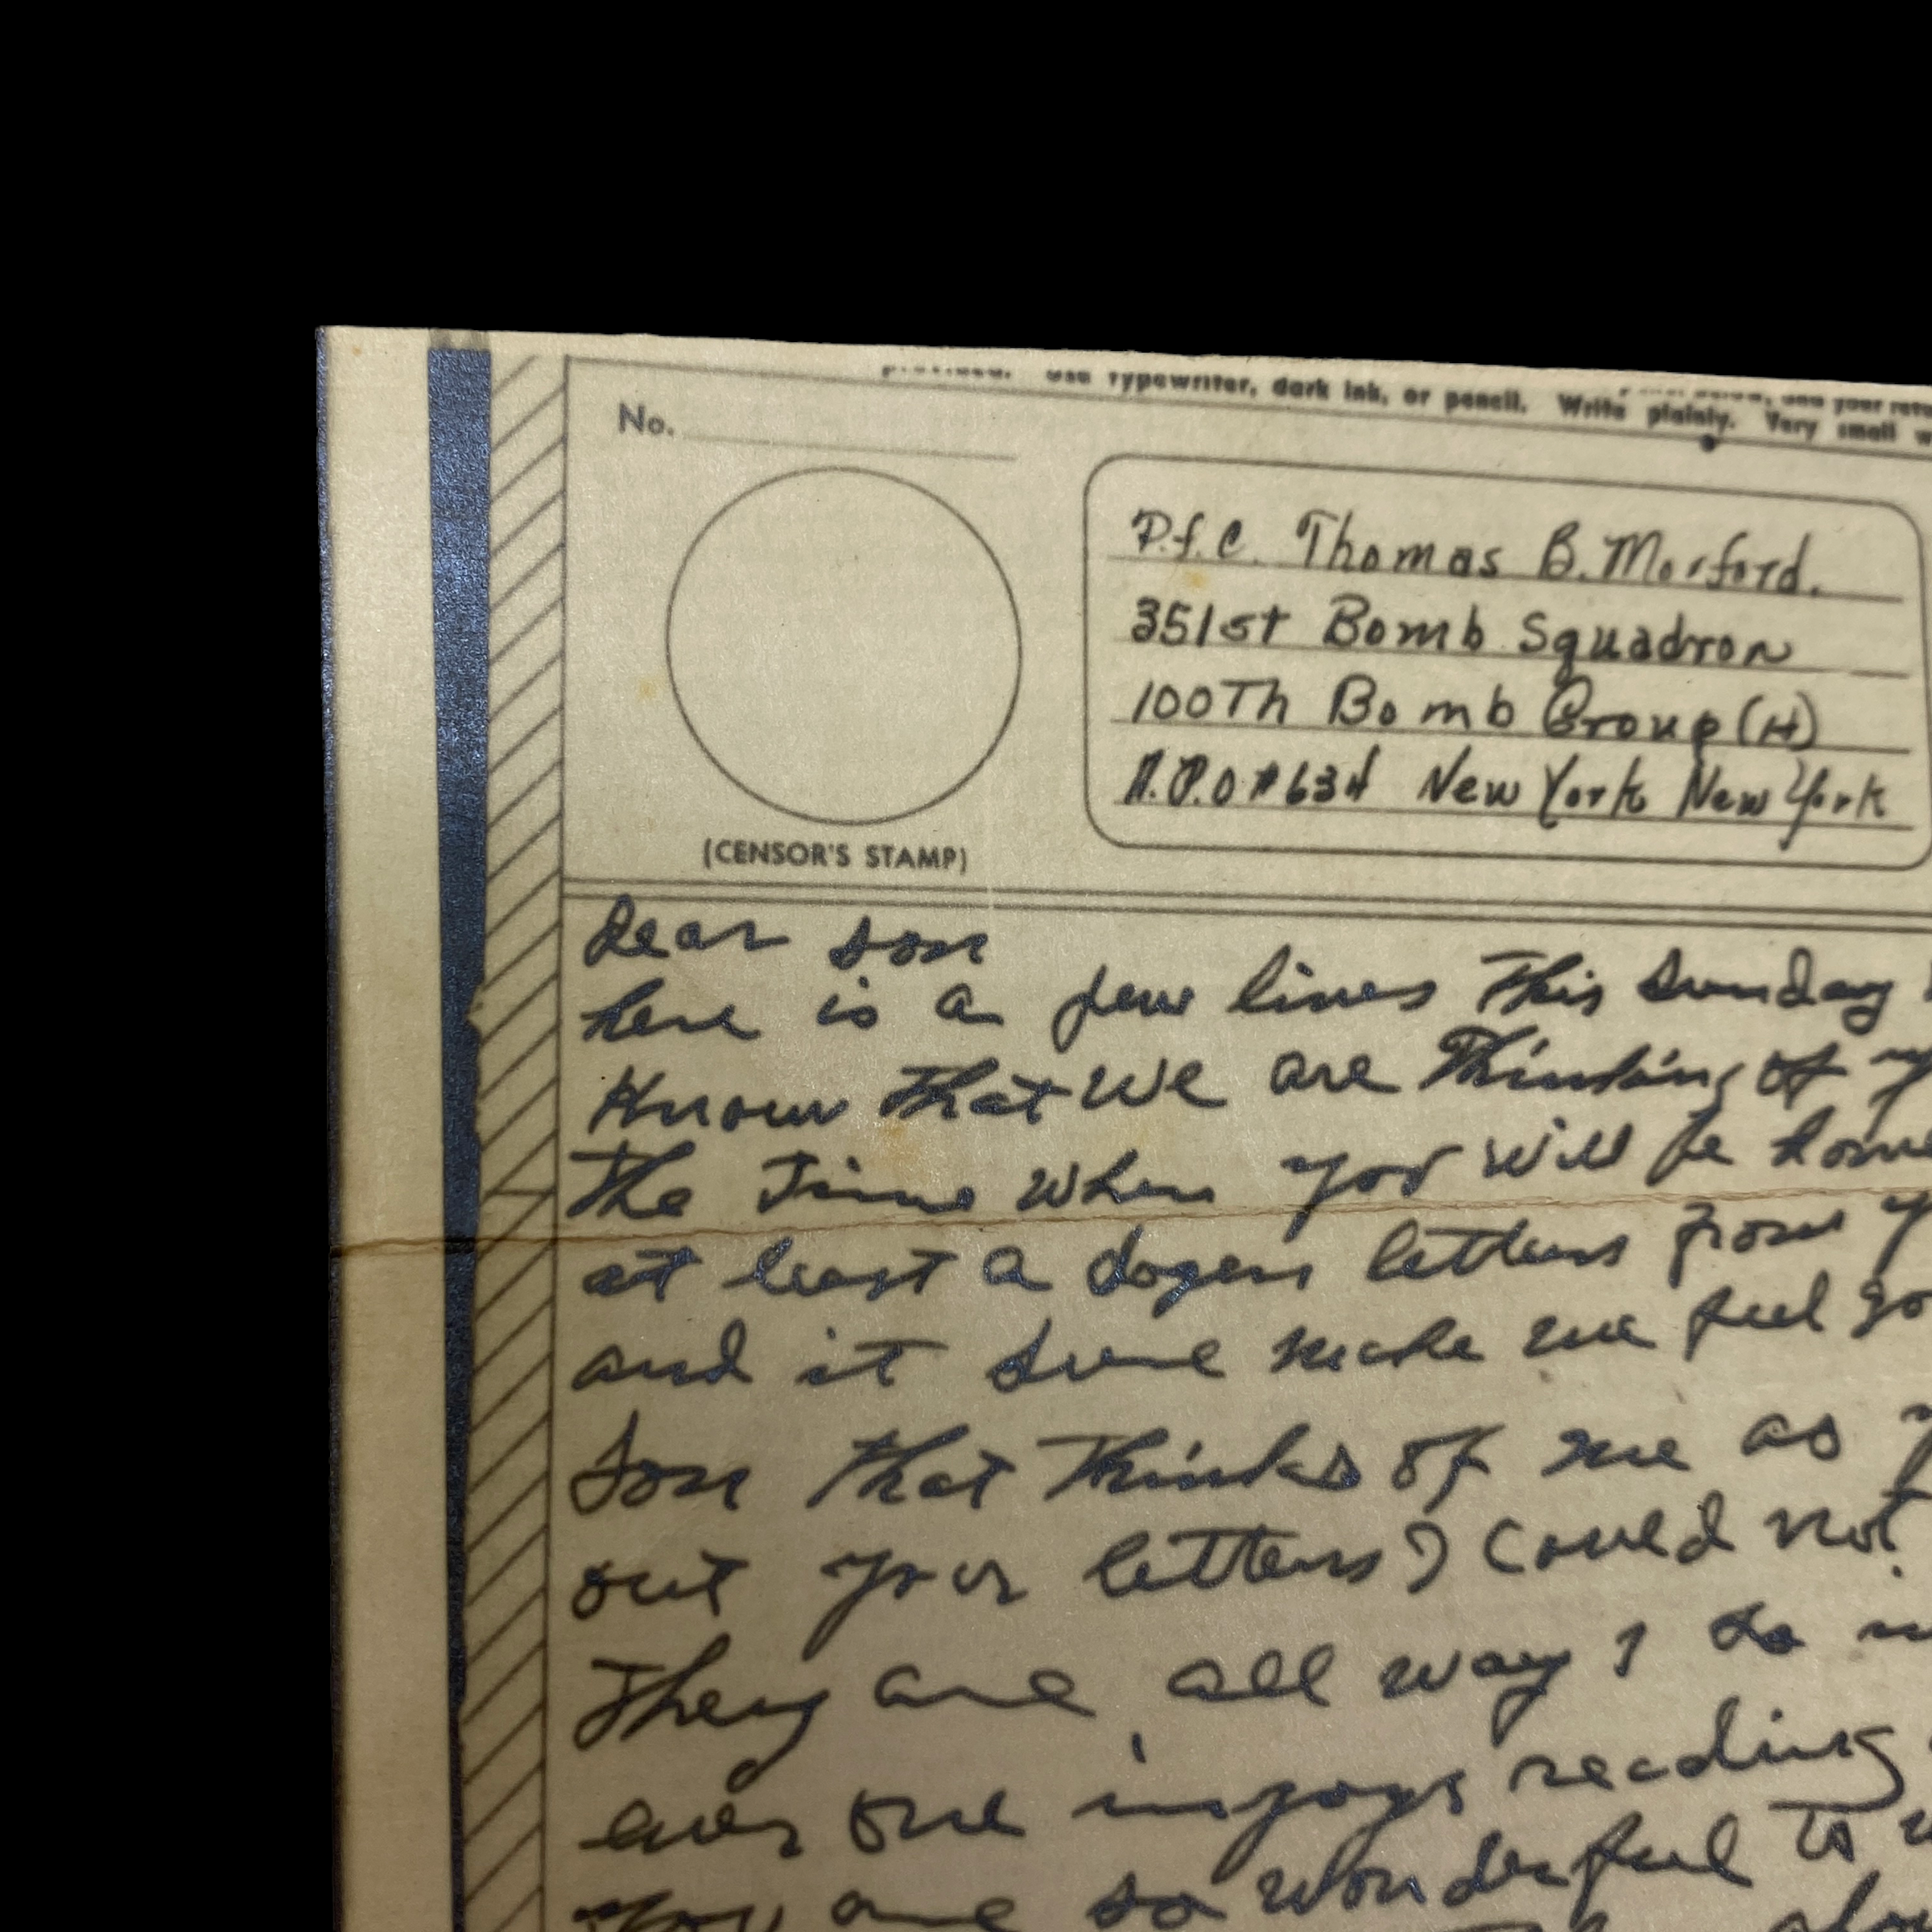 Use typewriter, dark ink, or pencil. Write plainly. Very small
No.
(CENSOR'S STAMP)
P.f.C. Thomas B. Morford.
351st Bomb Squadron
100Th Bomb Group (H)
A.P.O #634 New York New York
Dear son
here is a few lines This Sunday
Know That We are Thinking of
The Time When you Will be home
at least a dozen letters from
and it sure make me feel
Son that Thinks of me as
out your letters I Could not
They are all way I do
ever one injoys reading
You are so wonderful To